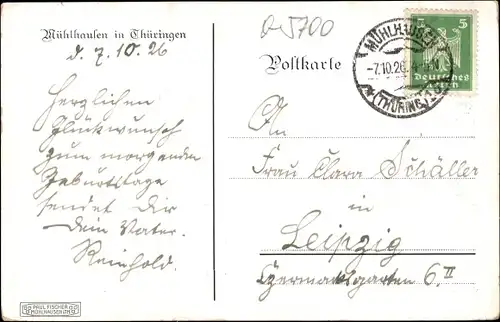 Mühlhausen in Thüringen
d. 7.10.26
Herzlichen
Glückwunsch
zum morgenden
Geburtstage
sendet Dir
Dein Vater.
Reinhold.
PAUL FISCHER
MÜHLHAUSEN i/TH
5700
Postkarte
MÜHLHAUSEN
-7.10.26.
(THÜRING.)
5 5
Deutsches
Reich
An
Frau Clara Schäller
in
Leipzig
Czermaksgarten 6.II